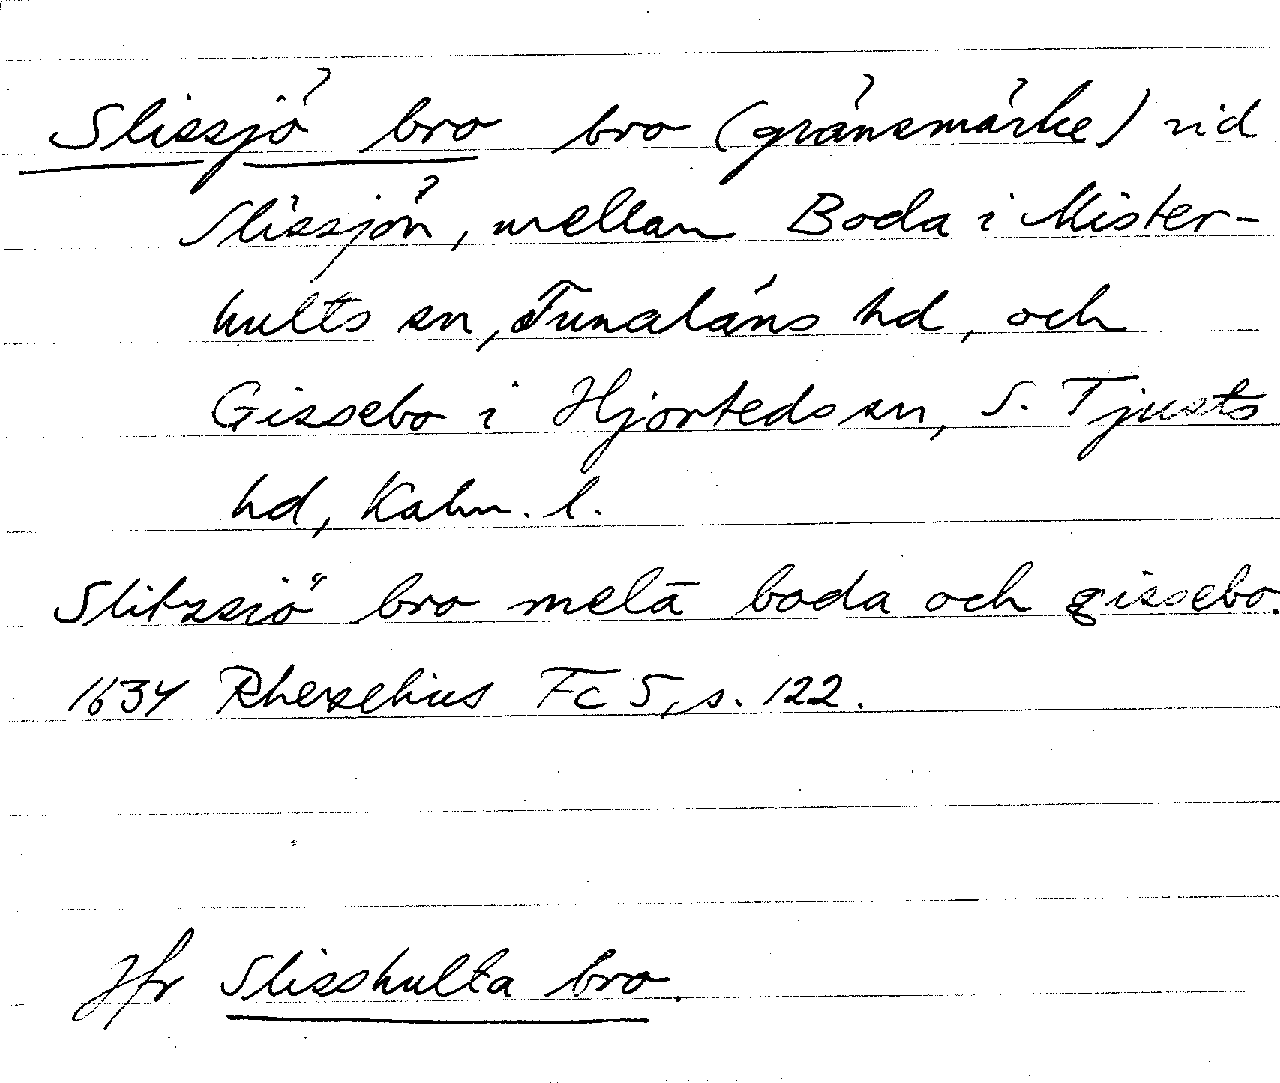 Slissjö bro bro (gränsmärke) vid
Slissjön, mellan Boda i Mister-
hults sn, Tunaläns hd, och
Gissebo i Hjorteds sn, S. Tjusts
hd, Kalm. l.
Slitzsiö bro melā boda och gissebo.
1634 Rhezelius Fc 5, s. 122.
Jfr Slisshulta bro.